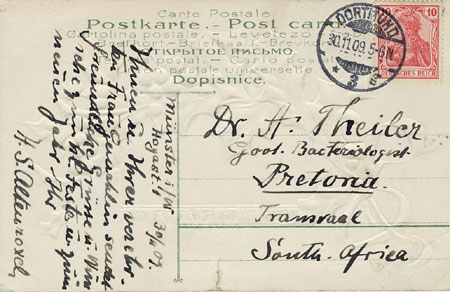 Carte Postale
Postkarte - Post card
Cartolina postale - Levelezo
Briefkart - Brevkort
ОТКРЫТОЕ ПИСЬМО.
postal - Carto postal
Union postale universelle
Dopisnice.
DORTMUND
30.11.09.5-6N.
* 3 g
10
DEUTSCHES REICH
Münster i/W
30/11 09.
Ihnen u. Ihrer verehr-
ten Frau Gemahlin sendet
freundliche Grüsse u. Wün-
sche zum Feste u. zum
neuen Jahr Ihr
Dr. A. Theiler
Govt. Bacteriologist.
Pretoria
Transvaal
South-Africa